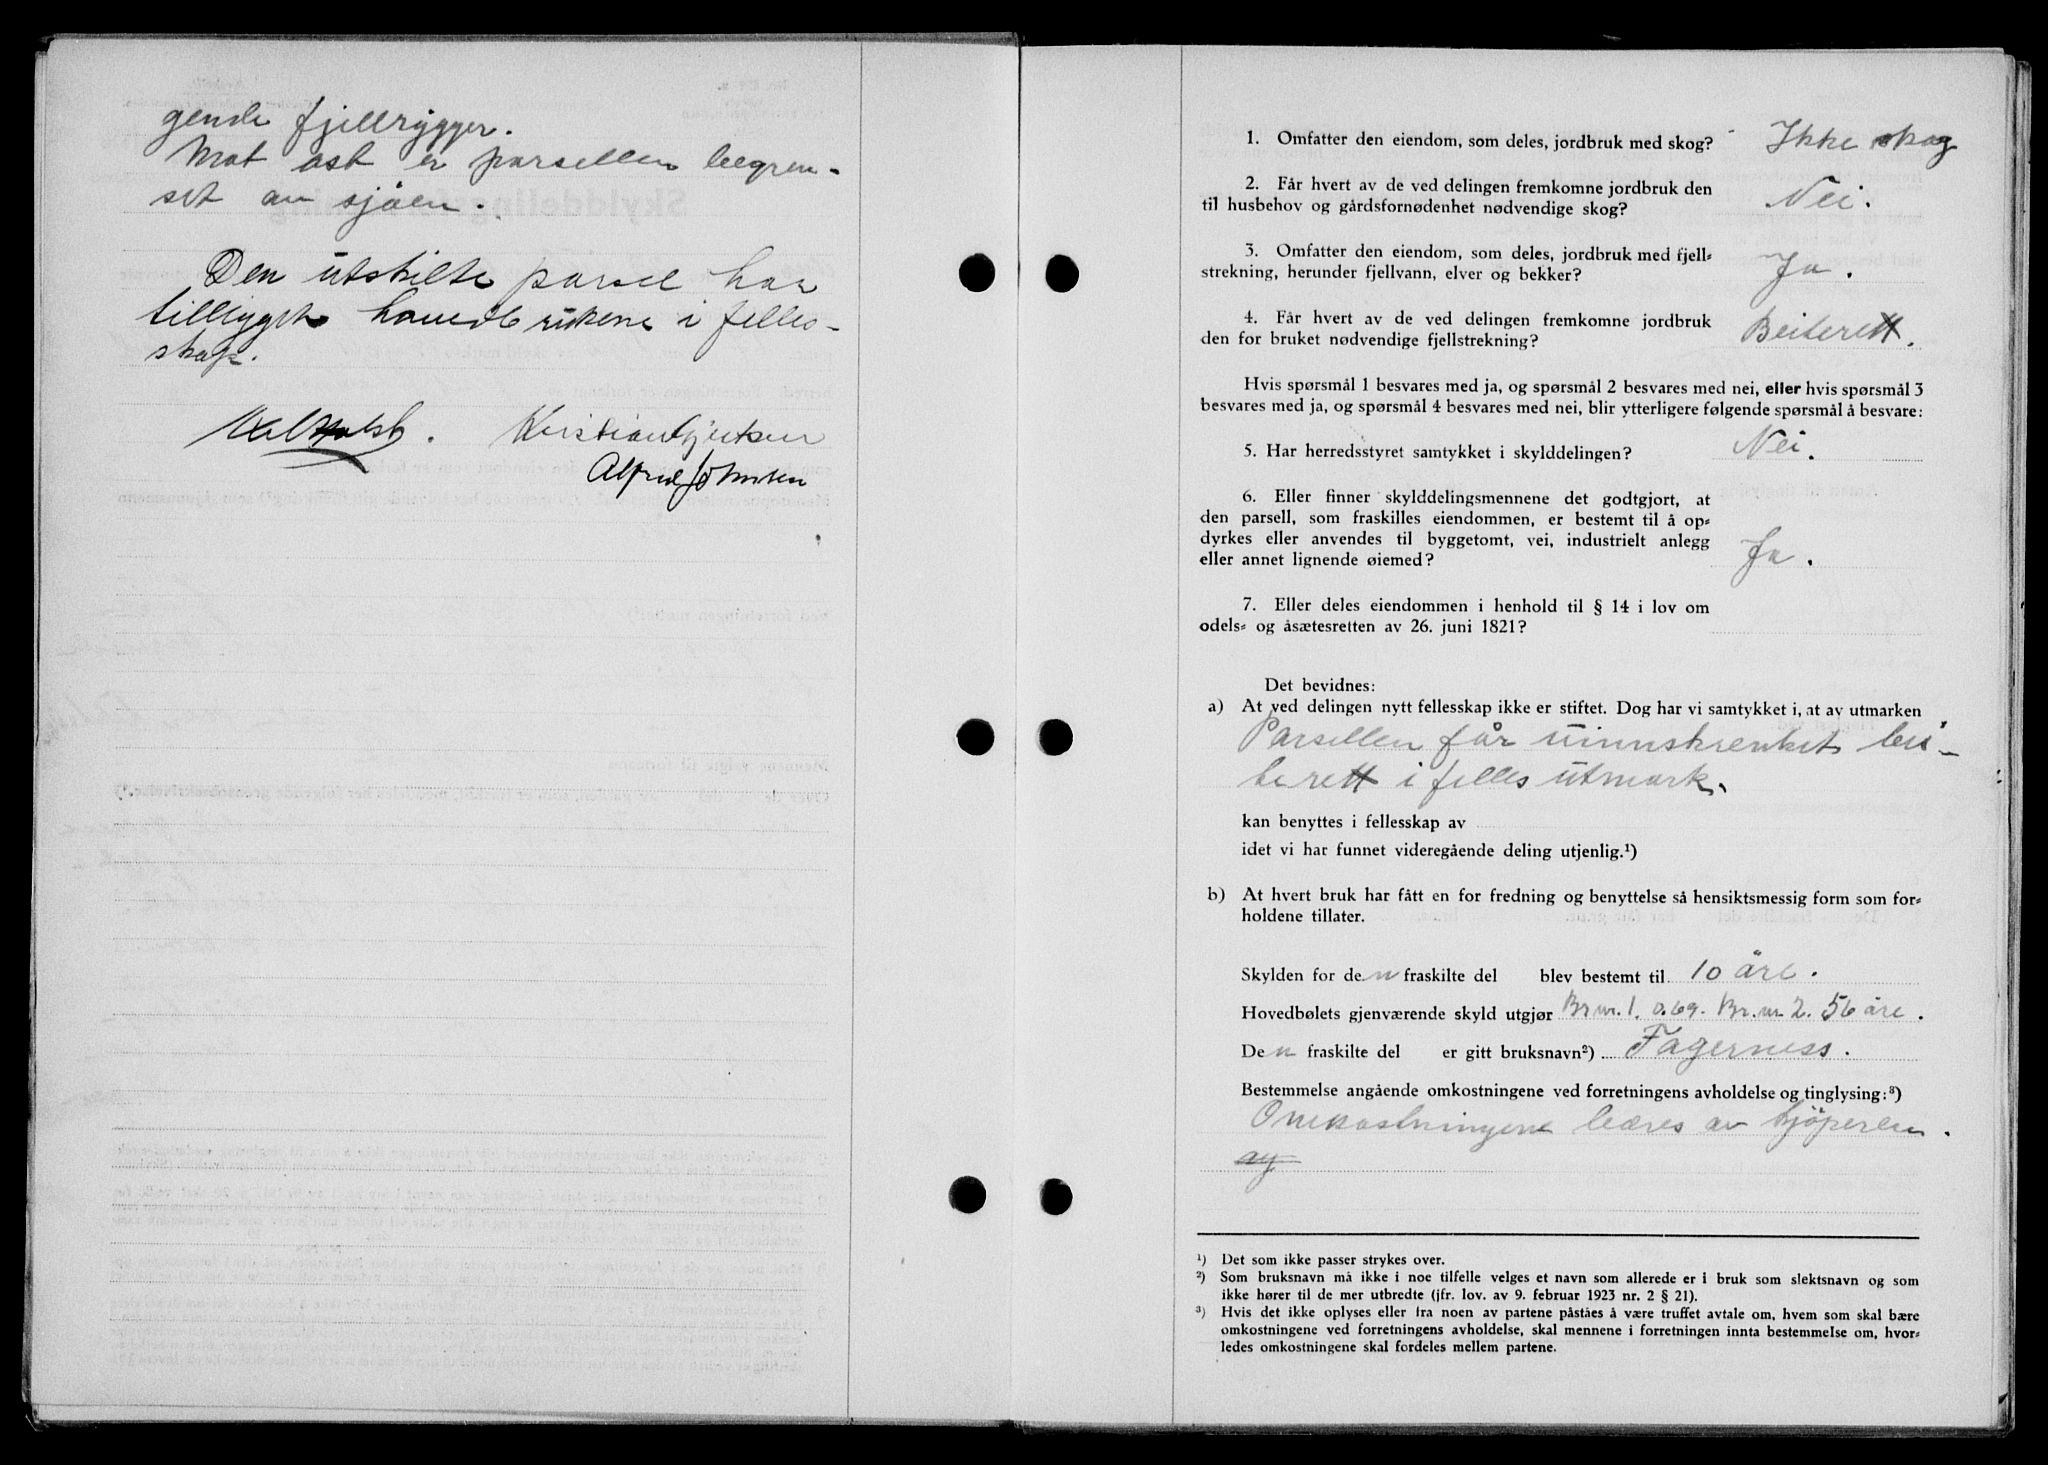 gende fjellrygger.
Mot øst er parsellen begren-
set av sjøen.
Den utskilte parsel har
i felles-
skap.
Kristian Gjertsen
Alfred Johnsen
1. Omfatter den eiendom, som deles, jordbruk med skog? Ikke skog
2. Får hvert av de ved delingen fremkomne jordbruk den
til husbehov og gårdsfornødenhet nødvendige skog? Nei.
3. Omfatter den eiendom, som deles, jordbruk med fjell=
strekning, herunder fjellvann, elver og bekker? Ja.
4. Får hvert av de ved delingen fremkomne jordbruk
den for bruket nødvendige fjellstrekning? Beiterett.
Hvis spørsmål 1 besvares med ja, og spørsmål 2 besvares med nei, eller hvis spørsmål 3
besvares med ja, og spørsmål 4 besvares med nei, blir ytterligere følgende spørsmål å besvare:
5. Har herredsstyret samtykket i skylddelingen? Nei.
6. Eller finner skylddelingsmennene det godtgjort, at
den parsell, som fraskilles eiendommen, er bestemt til å op=
dyrkes eller anvendes til byggetomt, vei, industrielt anlegg
eller annet lignende øiemed? Ja.
7. Eller deles eiendommen i henhold til § 14 i lov om
odels= og åsætesretten av 26. juni 1821?
Det bevidnes:
a) At ved delingen nytt fellesskap ikke er stiftet. Dog har vi samtykket i, at av utmarken
Parsellen får uinnskrenket bei-
terett i felles utmark.
kan benyttes i fellesskap av
idet vi har funnet videregående deling utjenlig.¹)
b) At hvert bruk har fått en for fredning og benyttelse så hensiktsmessig form som for=
holdene tillater.
Skylden for den fraskilte del blev bestemt til 10 øre.
Hovedbølets gjenværende skyld utgjør Br.nr. 1. 0.69. Br.nr. 2. 56 øre.
Den fraskilte del er gitt bruksnavn²) Fagerness.
Bestemmelse angående omkostningene ved forretningens avholdelse og tinglysing:³)
Omkostningene bæres av kjöperen.
og
¹) Det som ikke passer strykes over.
²) Som bruksnavn må ikke i noe tilfelle velges et navn som allerede er i bruk som slektsnavn og som
ikke hører til de mer utbredte (jfr. lov. av 9. februar 1923 nr. 2 § 21).
³) Hvis det ikke oplyses eller fra noen av partene påståes å være truffet avtale om, hvem som skal bære
omkostningene ved forretningens avholdelse, skal mennene i forretningen innta bestemmelse om, hvor=
ledes omkostningene skal fordeles mellem partene.